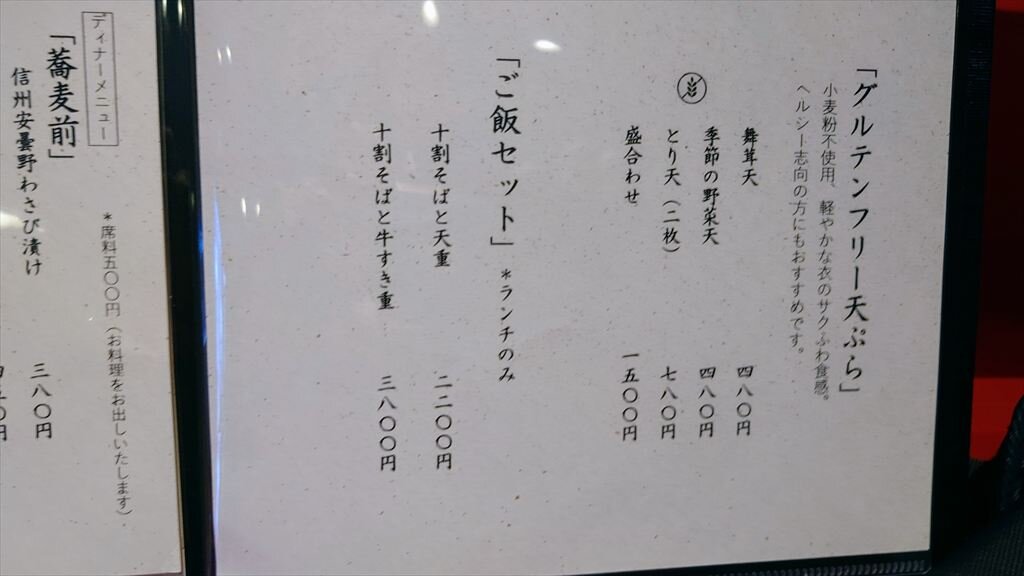 「グルテンフリー天ぷら」
小麦粉不使用、軽やかな衣のサクふわ食感。
ヘルシー志向の方にもおすすめです。
舞茸天 四八〇円
季節の野菜天 四八〇円
とり天（二枚）七八〇円
盛合わせ 一五〇〇円
「ご飯セット」＊ランチのみ
十割そばと天重 二二〇〇円
十割そばと牛すき重 三八〇〇円
＊席料五〇〇円（お料理をお出しいたします）
ディナーメニュー
「蕎麦前」
信州安曇野わさび漬け 三八〇円